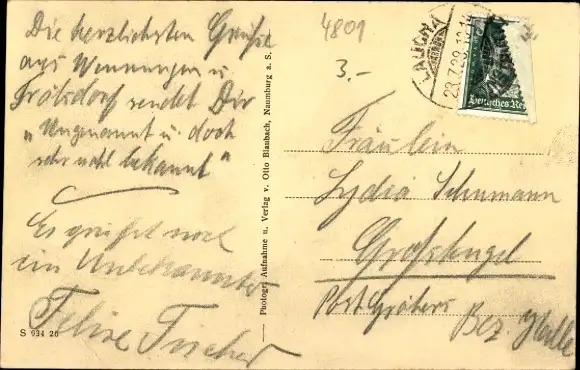 Die herzlichsten Grüße
aus Wennungen u
sendet Dir
"Ungenannt u. doch
sehr wohl bekannt"
Es grüßt noch
ein Unbekannter
Felix Fischer
S 934 26
Photogr. Aufnahme u. Verlag v. Otto Blaubach, Naumburg a. S.
4801
3.-
3.
LAUCHA
23.7.29.12-1
Deutsches Re
Fräulein
Lydia Schumann
Großkugel
Post Gröbers
Bez. Halle